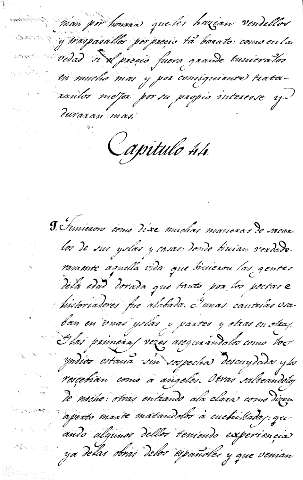 mian por honrra que les hazian vendellos
y traspasallos por precio tã barato: como en la
verdad si el precio fuera grande tuvieralos
en mucho mas y por consiguiente trata-
ranlos mejor por su propio interesse y
duraran mas.
Capitulo 44
Tuvieron como dixe muchas maneras de sacar
los de sus yslas y casas donde bivian verdade
ramente aquella vida que bivieron las gentes
de la edad dorada que tanto por los poetas e
historiadores fue alabada. Unas cautelas usa
ban en unas yslas y partes y otras en otras,
E las primeras vezes assegurandolos como los
yndios estavan sin sospecha descuydados y los
rescebian como a angeles. Otras salteandolos
de noche: otras entrando a la clara como dizen
aperto marte matandolos a cuchilladas: qu
ando algunos dellos teniendo experiencia
ya de las obras de los españoles y que venian